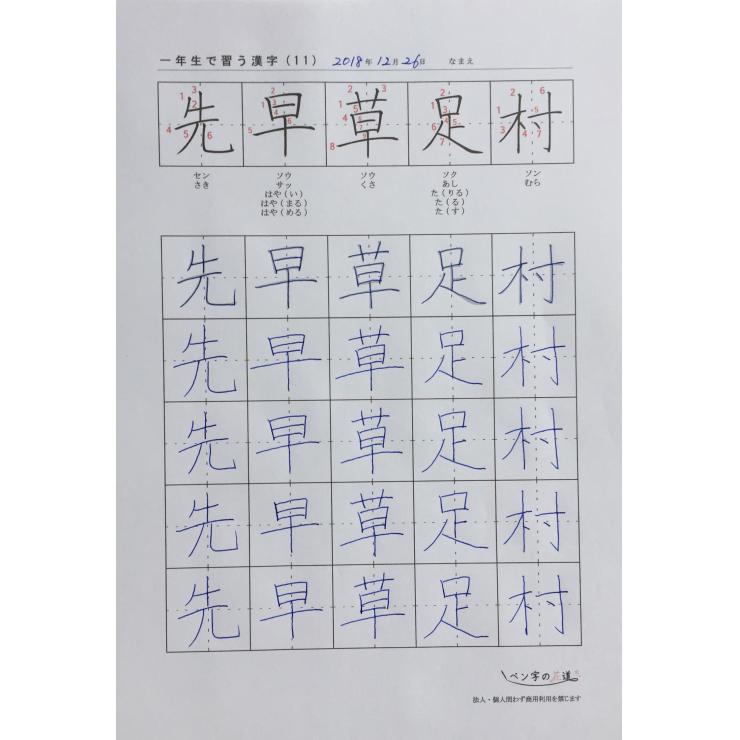 一年生で習う漢字(11) 2018年12月26日 なまえ
先 早 草 足 村
セン ソウ ソウ ソク ソン
さき サッ くさ あし むら
はや(い) た(りる)
はや(まる) た(る)
はや(める) た(す)
先 早 草 足 村
先 早 草 足 村
先 早 草 足 村
先 早 草 足 村
先 早 草 足 村
ペン字の花道
法人・個人問わず商用利用を禁じます